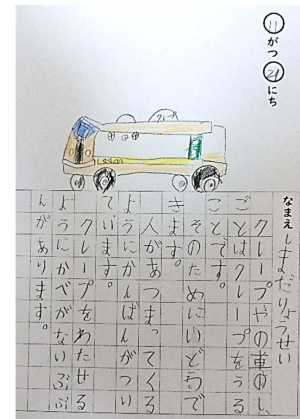 11がつ21にち
なまえ しまだりょうせい
クレープやの車のし
ごとはクレープをうる
ことです。
そのためにいどうで
きます。
人があつまってくる
ようにかんばんがつい
ています。
クレープをわたせる
ようにかべがないぶぶ
んがあります。
クレープ